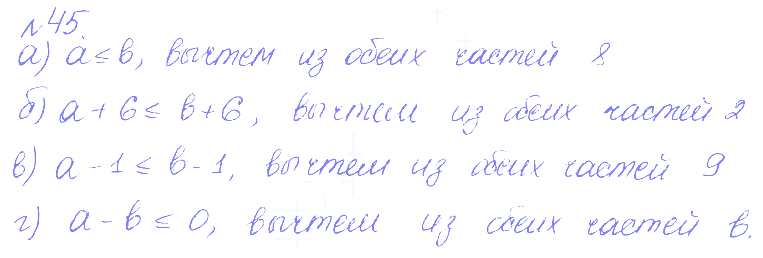 №45.
а) а ≤ в, вычтем из обеих частей 8
б) а + 6 ≤ в + 6, вычтем из обеих частей 2
в) а - 1 ≤ в - 1, вычтем из обеих частей 9
г) а - в ≤ 0, вычтем из обеих частей в.